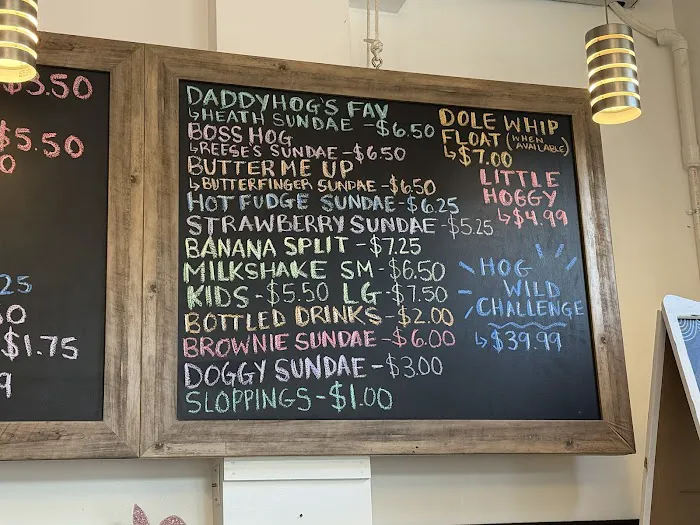 $3.50
$5.50
0
25
0
$1.75
9
DADDYHOG'S FAV
↳HEATH SUNDAE -$6.50
BOSS HOG
↳REESE'S SUNDAE-$6.50
BUTTER ME UP
↳BUTTERFINGER SUNDAE-$6.50
HOT FUDGE SUNDAE-$6.25
STRAWBERRY SUNDAE-$5.25
BANANA SPLIT-$7.25
MILKSHAKE SM-$6.50
KIDS-$5.50 LG-$7.50
BOTTLED DRINKS-$2.00
BROWNIE SUNDAE-$6.00
DOGGY SUNDAE-$3.00
SLOPPINGS-$1.00
DOLE WHIP
FLOAT (WHEN AVAILABLE)
↳$7.00
LITTLE
HOGGY
↳$4.99
HOG
WILD
CHALLENGE
↳$39.99